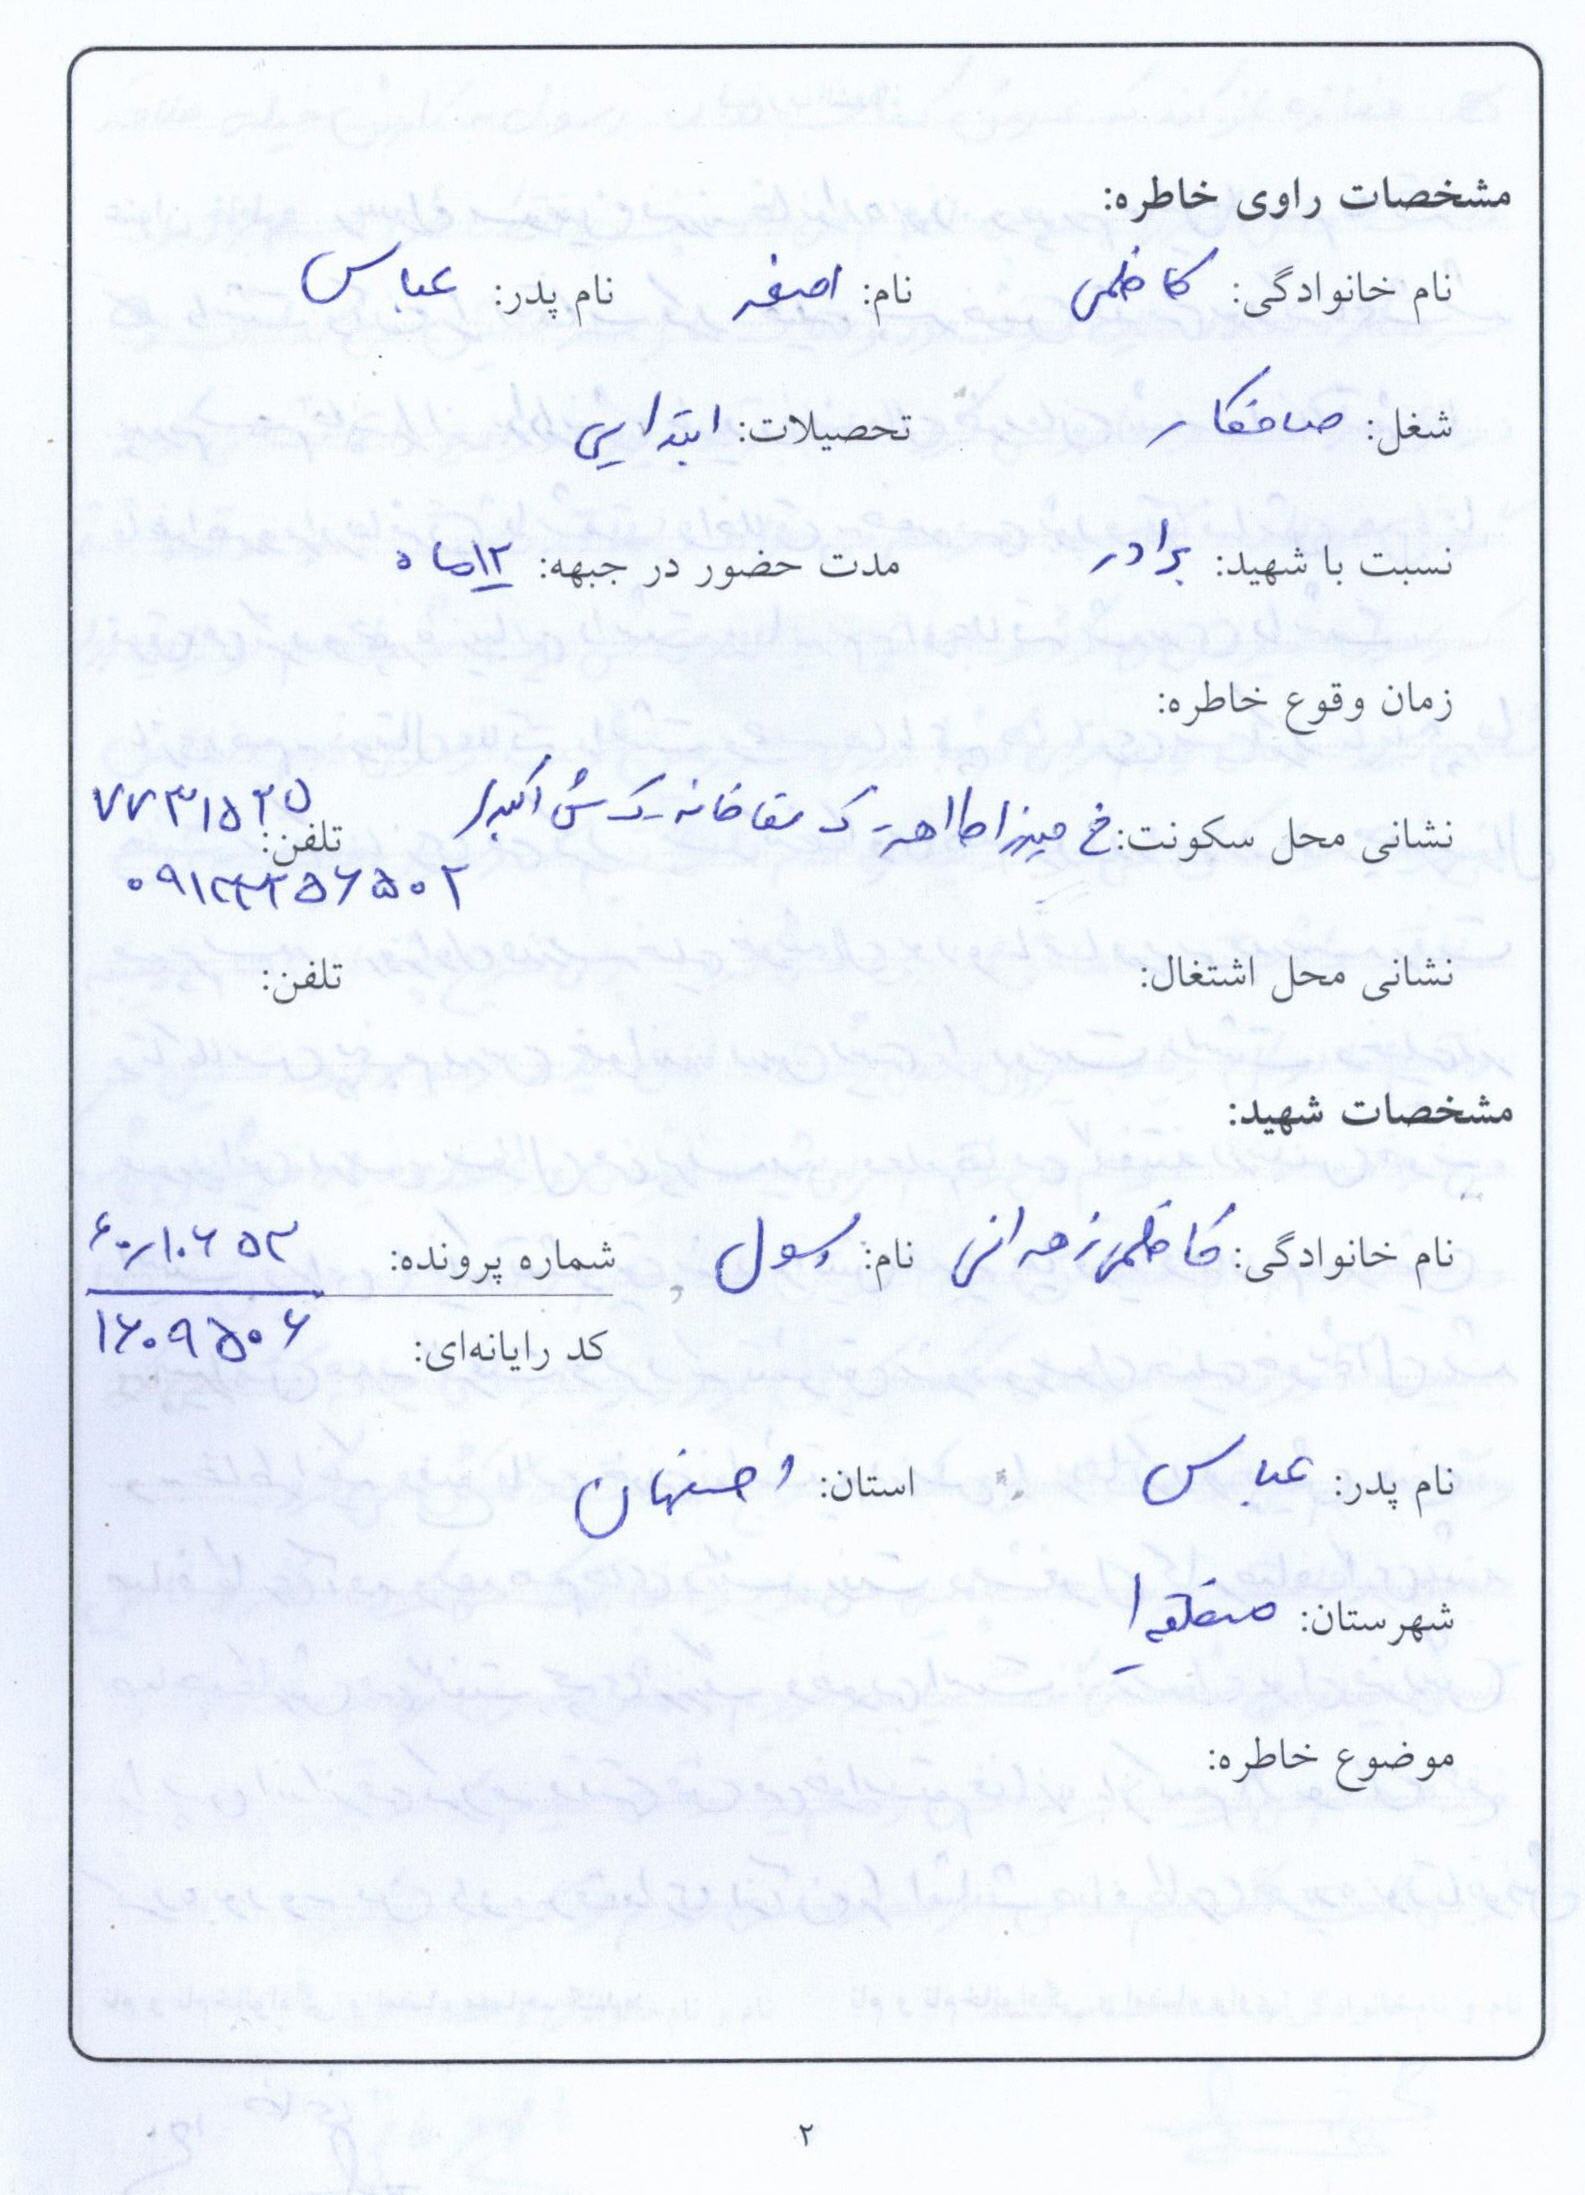 مشخصات راوی خاطره:
نام خانوادگی: کاظمی نام: اصغر نام پدر: عباس
شغل: صافکار تحصیلات: ابتدایی
نسبت با شهید: برادر مدت حضور در جبهه: ۱۲ماه
زمان وقوع خاطره:
نشانی محل سکونت: خ میرزا طاهر ک سقاخانه ک ش تلفن: ۷۷۳۱۵۲۵
نشانی محل اشتغال: تلفن:
مشخصات شهید:
نام خانوادگی: کاظمی زمرانی نام: رسول شماره پرونده:
کد رایانه‌ای: ۱۶۰۹۵۰۶
نام پدر: عباس استان: اصفهان
شهرستان: منطقه ۱
موضوع خاطره:
۲